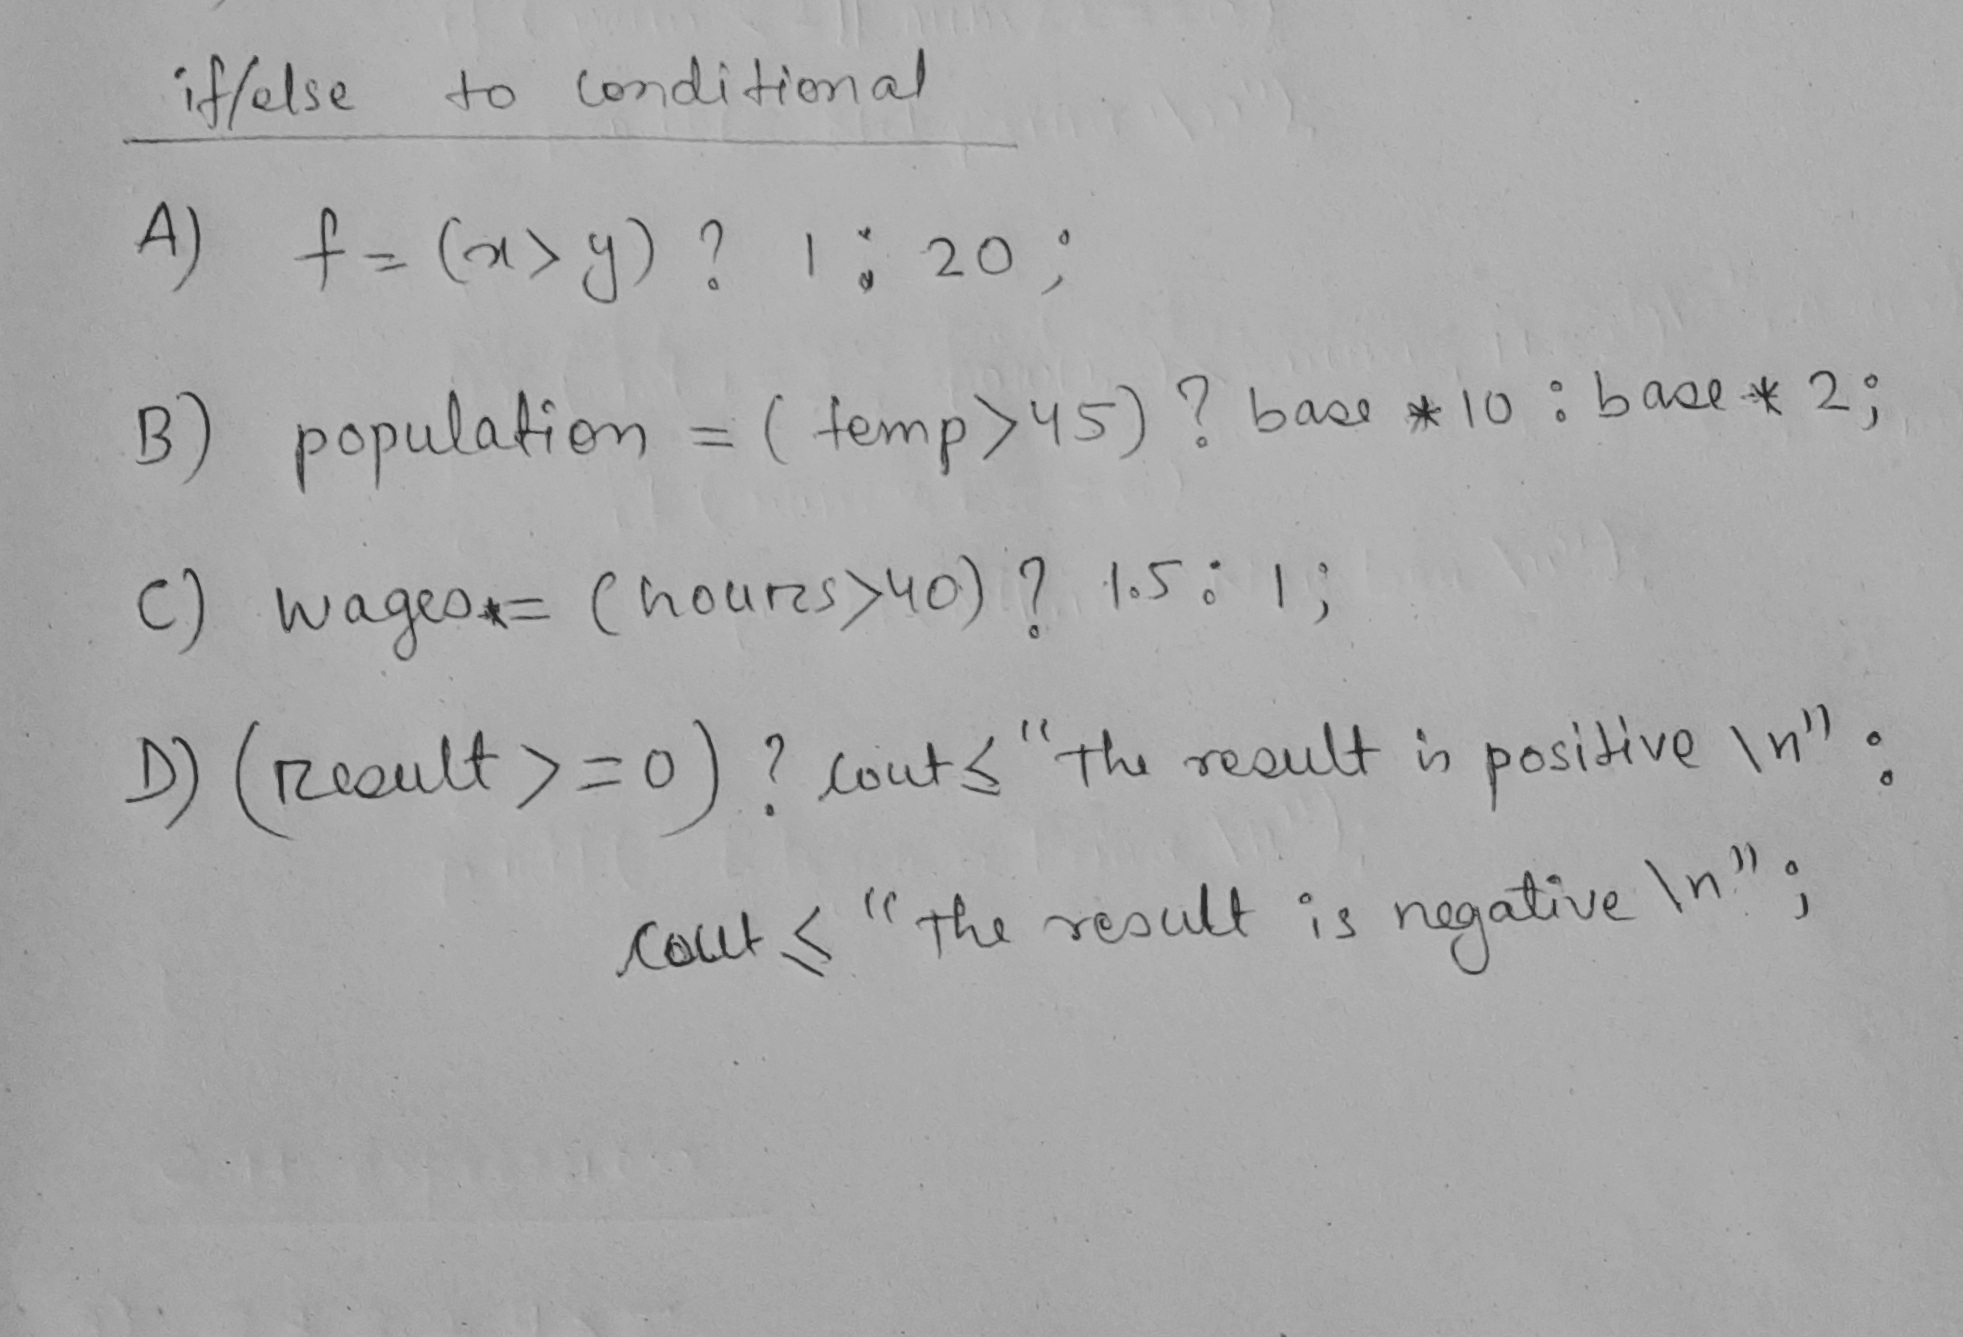 if/else to conditional
A) f = (x > y) ? 1 : 20 ;
B) population = ( temp > 45) ? base * 10 : base * 2 ;
C) wages *= (hours > 40) ? 1.5 : 1 ;
D) (result >= 0) ? cout ≤ "The result is positive \n" :
cout ≤ "The result is negative \n" ;